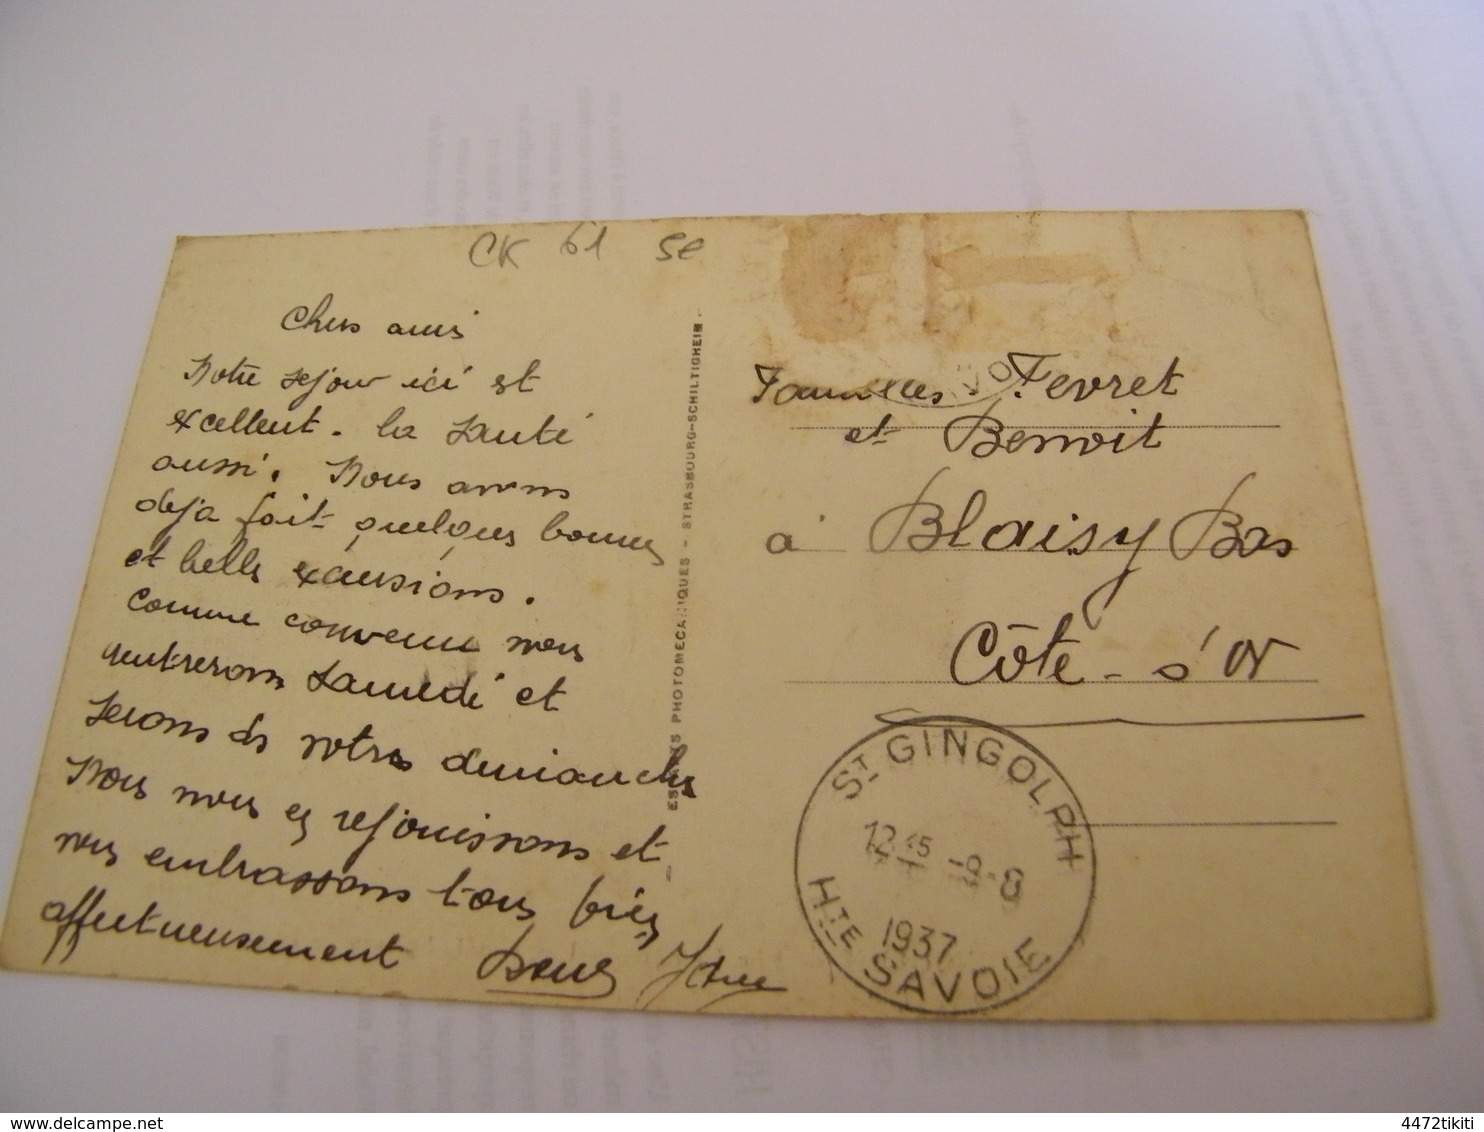 CK 61 SE
Chers amis
Notre sejour ici est
excellent. la santé
aussi. Nous avons
deja fait quelques bonnes
et belles excursions.
Comme convenu nous
rentrerons Samedi et
serons des votres dimanche
Nous nous en rejouissons et
vous embrassons tous bien
affectueusement
PHOTOMECANIQUES - STRASBOURG-SCHILTIGHEIM
Familles Fevret
et Benoit
à Blaisy Bas
Côte-d'Or
ST GINGOLPH
12 15 -9-8
1937
HTE SAVOIE
delcampe.net
4472tikiti